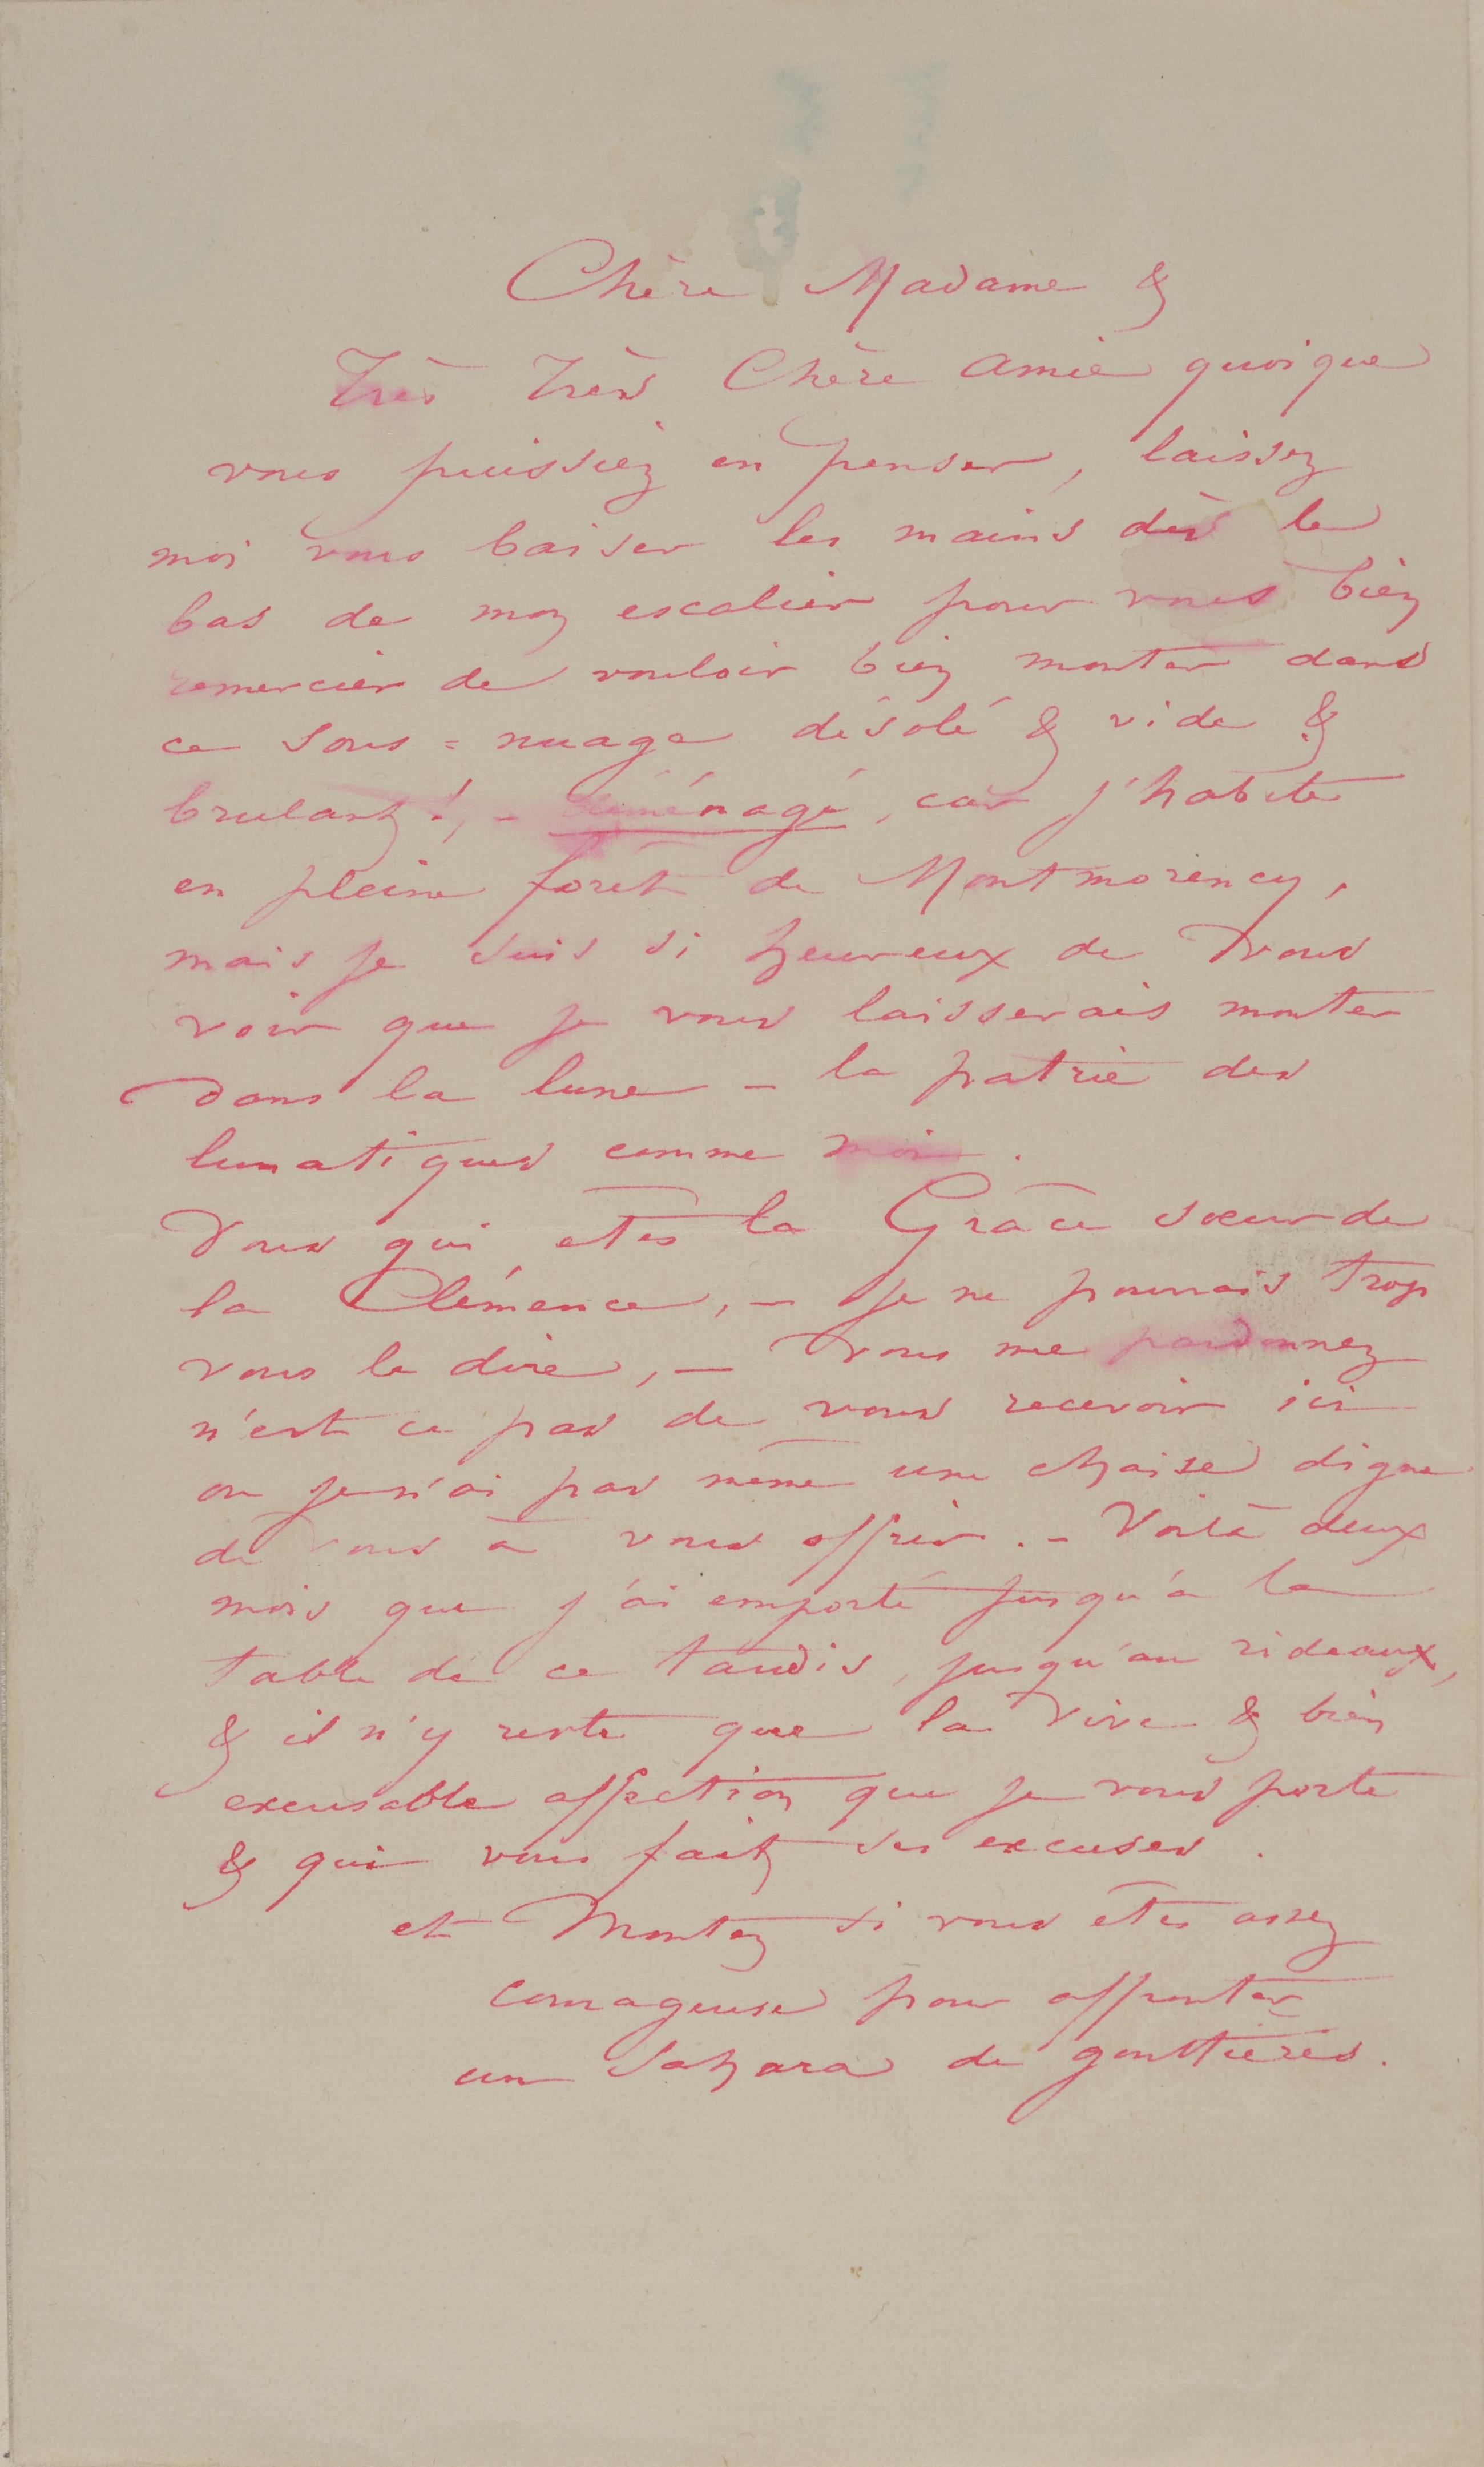 Chère Madame &
Très Très Chère amie quoique
vous puissiez en penser, laissez
moi vous baiser les mains dès le
bas de mon escalier pour vous bien
remercier de vouloir bien monter dans
ce sous = nuage désolé & vide &
brulant !, - déménagé, car j'habite
en pleine forêt de Montmorency,
mais je suis si heureux de vous
voir que je vous laisserais monter
dans la lune - la patrie des
lunatiques comme moi.
Vous qui êtes la Grâce soeur de
la Clémence, - je ne pourrais trop
vous le dire, - vous me pardonnez
n'est ce pas de vous recevoir ici
ou je n'ai pas même une chaise digne
de vous à vous offrir. - Voilà deux
mois que j'ai emporté jusqu'à la
table de ce taudis, jusqu'au rideaux,
& il n'y reste que la vive & bien
excusable affection que je vous porte
& qui vous fait ses excuses.
et Montez si vous êtes assez
courageuse pour affronter
un Sahara de gouttières.